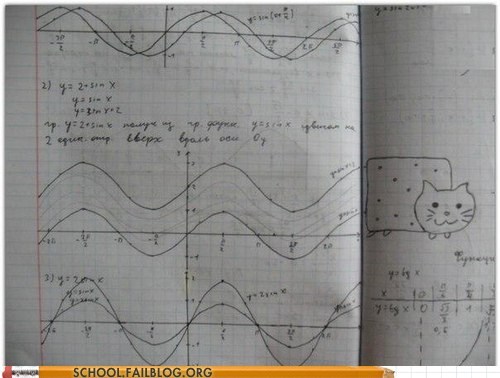 y=sin(x+π/4)
-3π/2 -π π/2 π 3π/2 2π 5π/2
2) y=2+sin x
y=sin x
y=sin x+2
гр. y=2+sin x получ из гр. функ y=sin x сдвигом на
2 един. отр. вверх вдоль оси Oy
y
-2π -3π/2 -π -π/2 π/2 π 3π/2 2π
3) y=2sin x
y=sin x
y=2sin x
y=2sin x
Функция
y=tg x
x 0 π/6 π/4
y=tg x 0 √3/3 1
0,6
SCHOOL.FAILBLOG.ORG